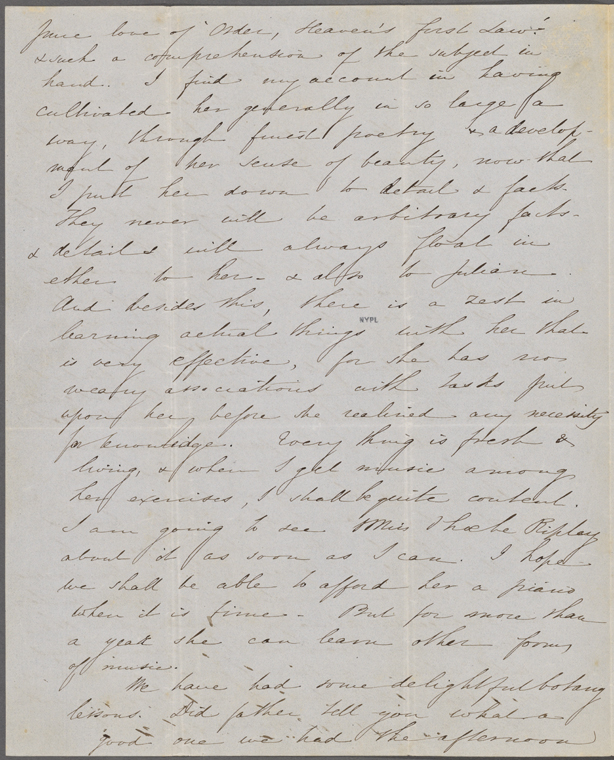 pure love of "Order, Heaven's first Law."
& such a comprehension of the subject in
hand. I find my account in having
cultivated her generally in so large a
way, through finest poetry & a develop-
ment of her sense of beauty, now that
I put her down to detail & facts.
They never will be arbitrary facts -
& details will always float in
ether to her - & also to Julian.
And besides this, there is a zest in
NYPL
learning actual things with her that
is very effective, for she has no
weary associations with tasks put
upon her before she realized any necessity
for knowledge. Every thing is fresh &
living, & when I get music among
her exercises, I shall be quite content.
I am going to see Miss Phoebe Ripley
about it as soon as I can. I hope
we shall be able to afford her a piano
when it is time - But for more than
a year she can learn other forms
of music.
We have had some delightful botany
lessons. Did father tell you what a
good one we had the afternoon